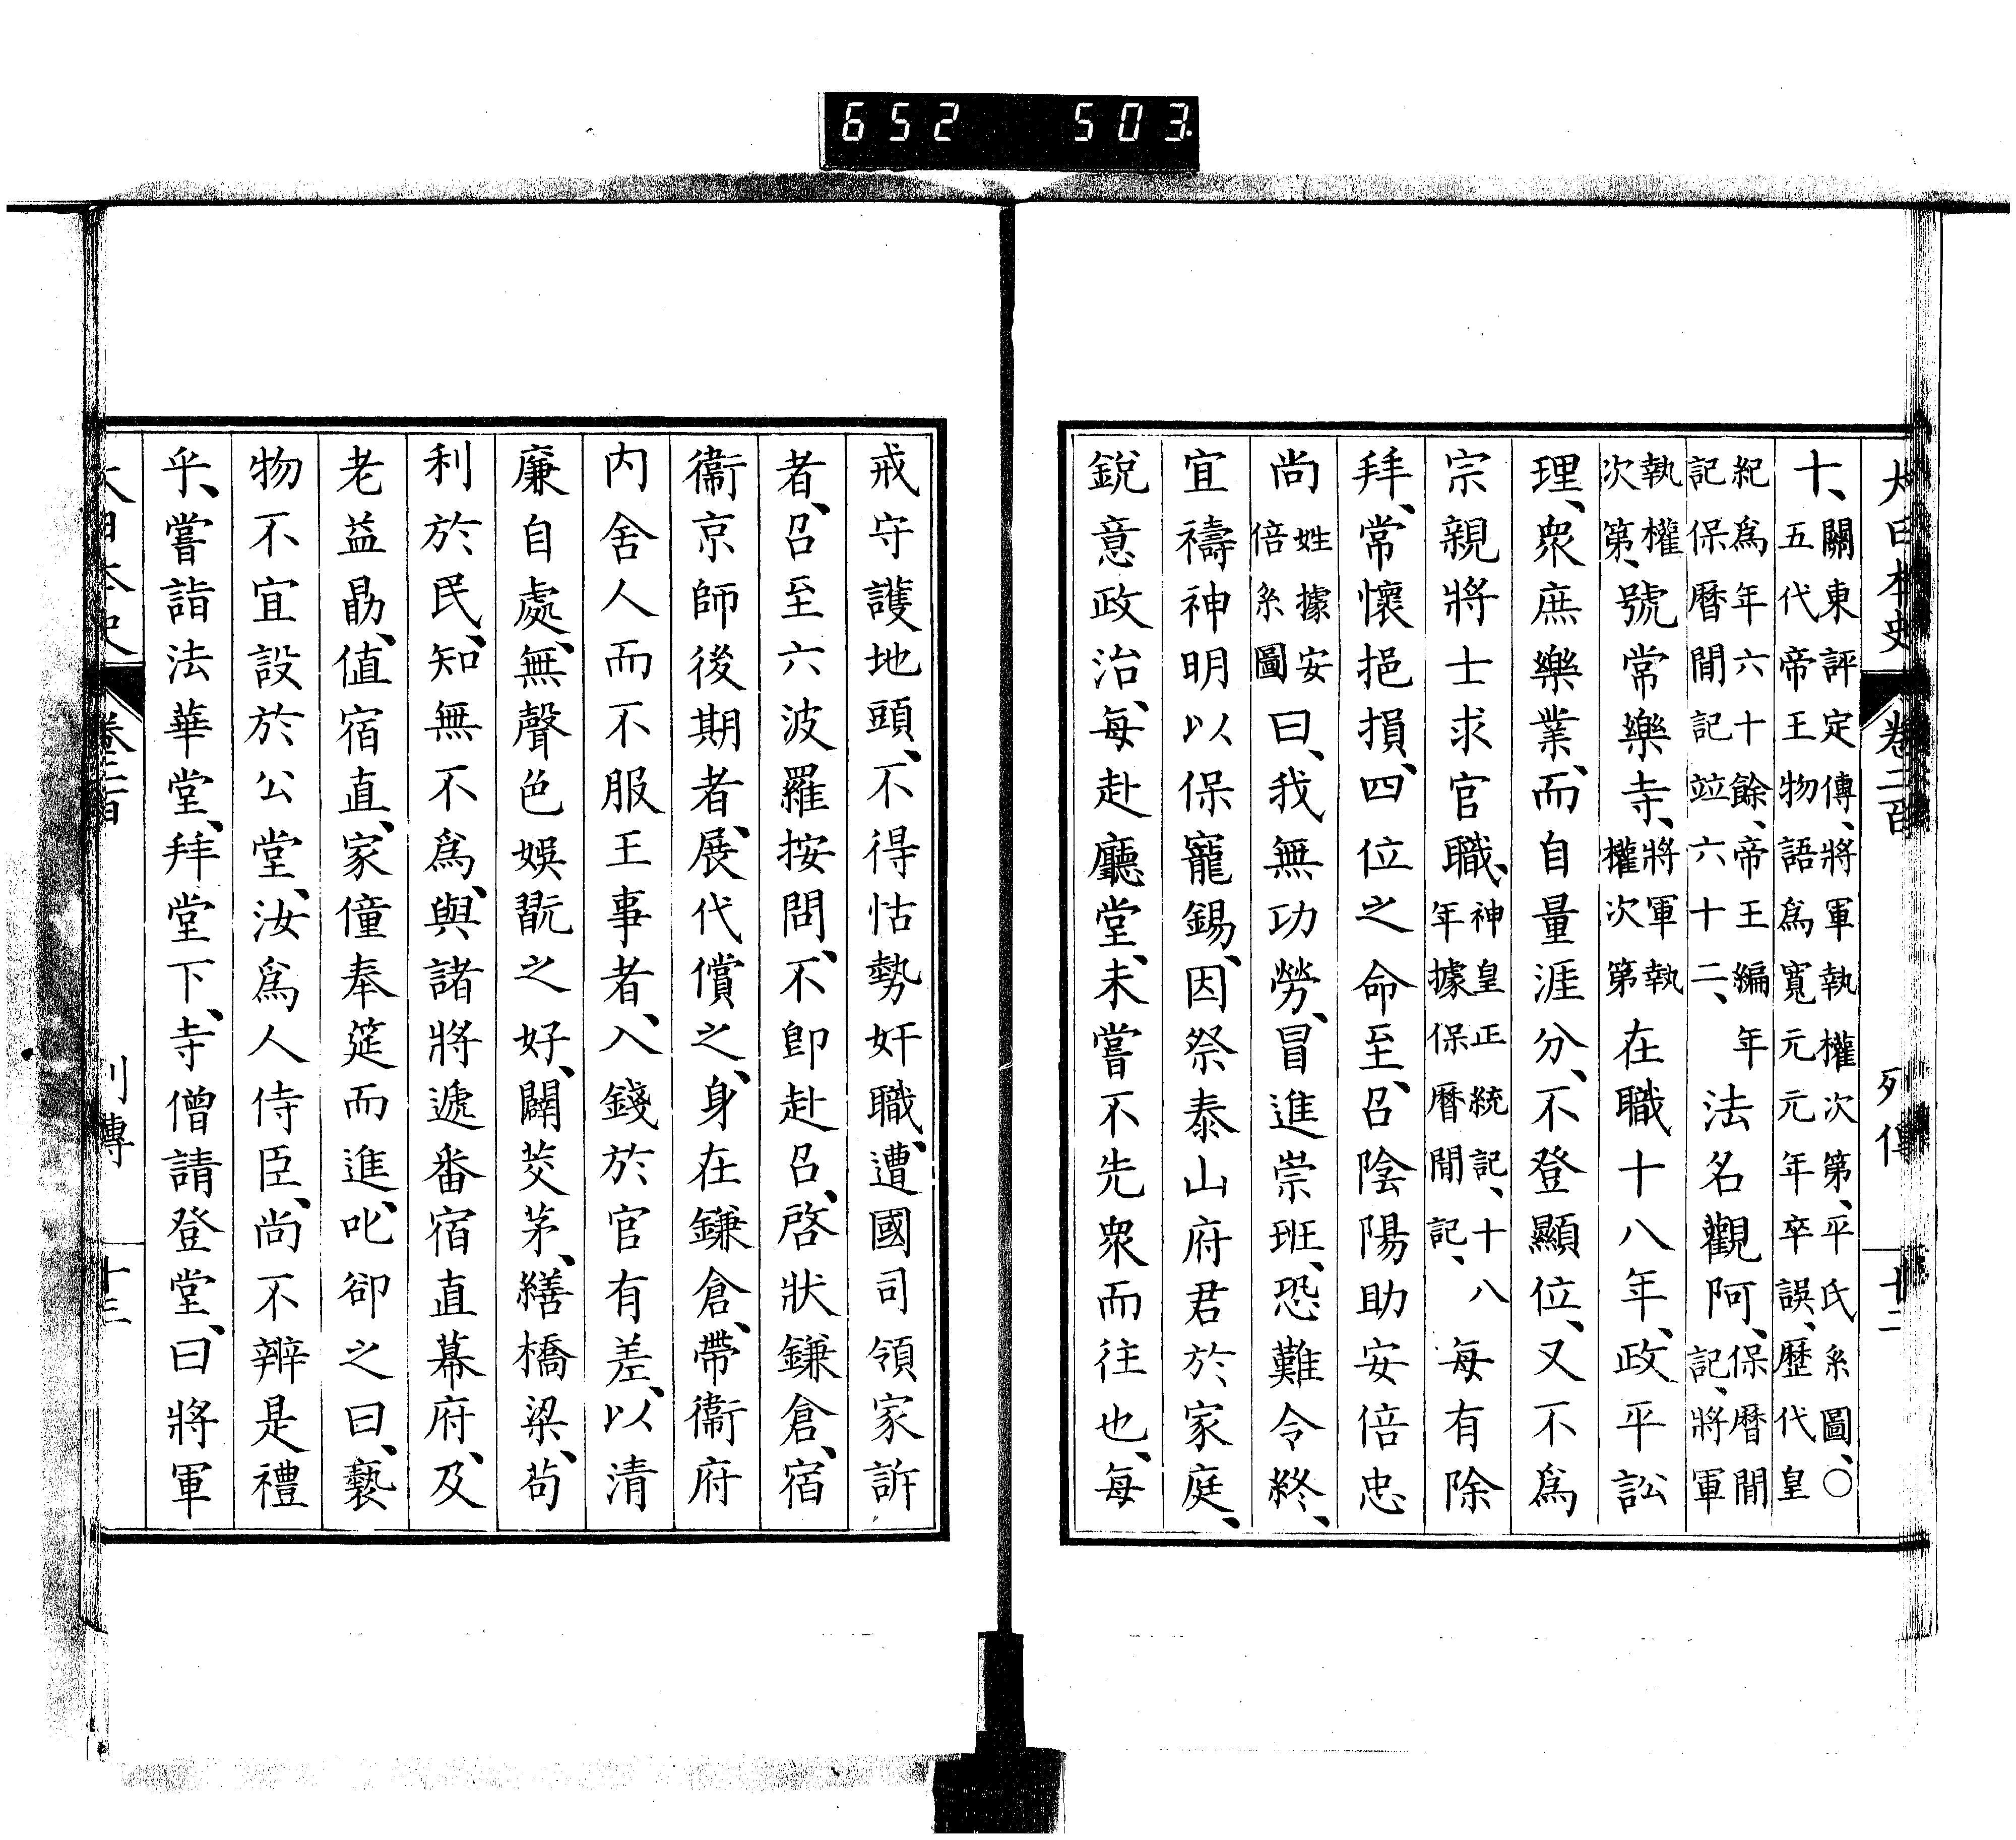 652 503
大日本史 卷二百 列傳 十二
十、關東評定傳、將軍執權次第、平氏系圖、〇五代帝王物語爲寬元元年卒誤、歷代皇
紀爲年六十餘、帝王編年記保曆間記竝六十二、法名觀阿、保曆間記、將軍
執權次第、號常樂寺、將軍執權次第在職十八年、政平訟
理、衆庶樂業、而自量涯分、不登顯位、又不爲
宗親將士求官職、神皇正統記、十八年據保曆間記、每有除
拜、常懷挹損、四位之命至、召陰陽助安倍忠
尚姓據安倍系圖曰、我無功勞、冒進崇班、恐難令終、
宜禱神明以保寵錫、因祭泰山府君於家庭、
銳意政治、每赴廳堂、未嘗不先衆而往也、每
戒守護地頭、不得怙勢奸職、遭國司領家訴
者、召至六波羅按問、不卽赴召、啓狀鎌倉、宿
衞京師後期者、展代償之、身在鎌倉、帶衞府
內舍人而不服王事者、入錢於官有差、以淸
廉自處、無聲色娛翫之好、闢茭茅、繕橋梁、苟
利於民、知無不爲、與諸將遞番宿直幕府、及
老益勗、値宿直、家僮奉筵而進、叱卻之曰、褻
物不宜設於公堂、汝爲人侍臣、尚不辨是禮
乎、嘗詣法華堂、拜堂下、寺僧請登堂、曰將軍
大日本史 卷二百 列傳 十三